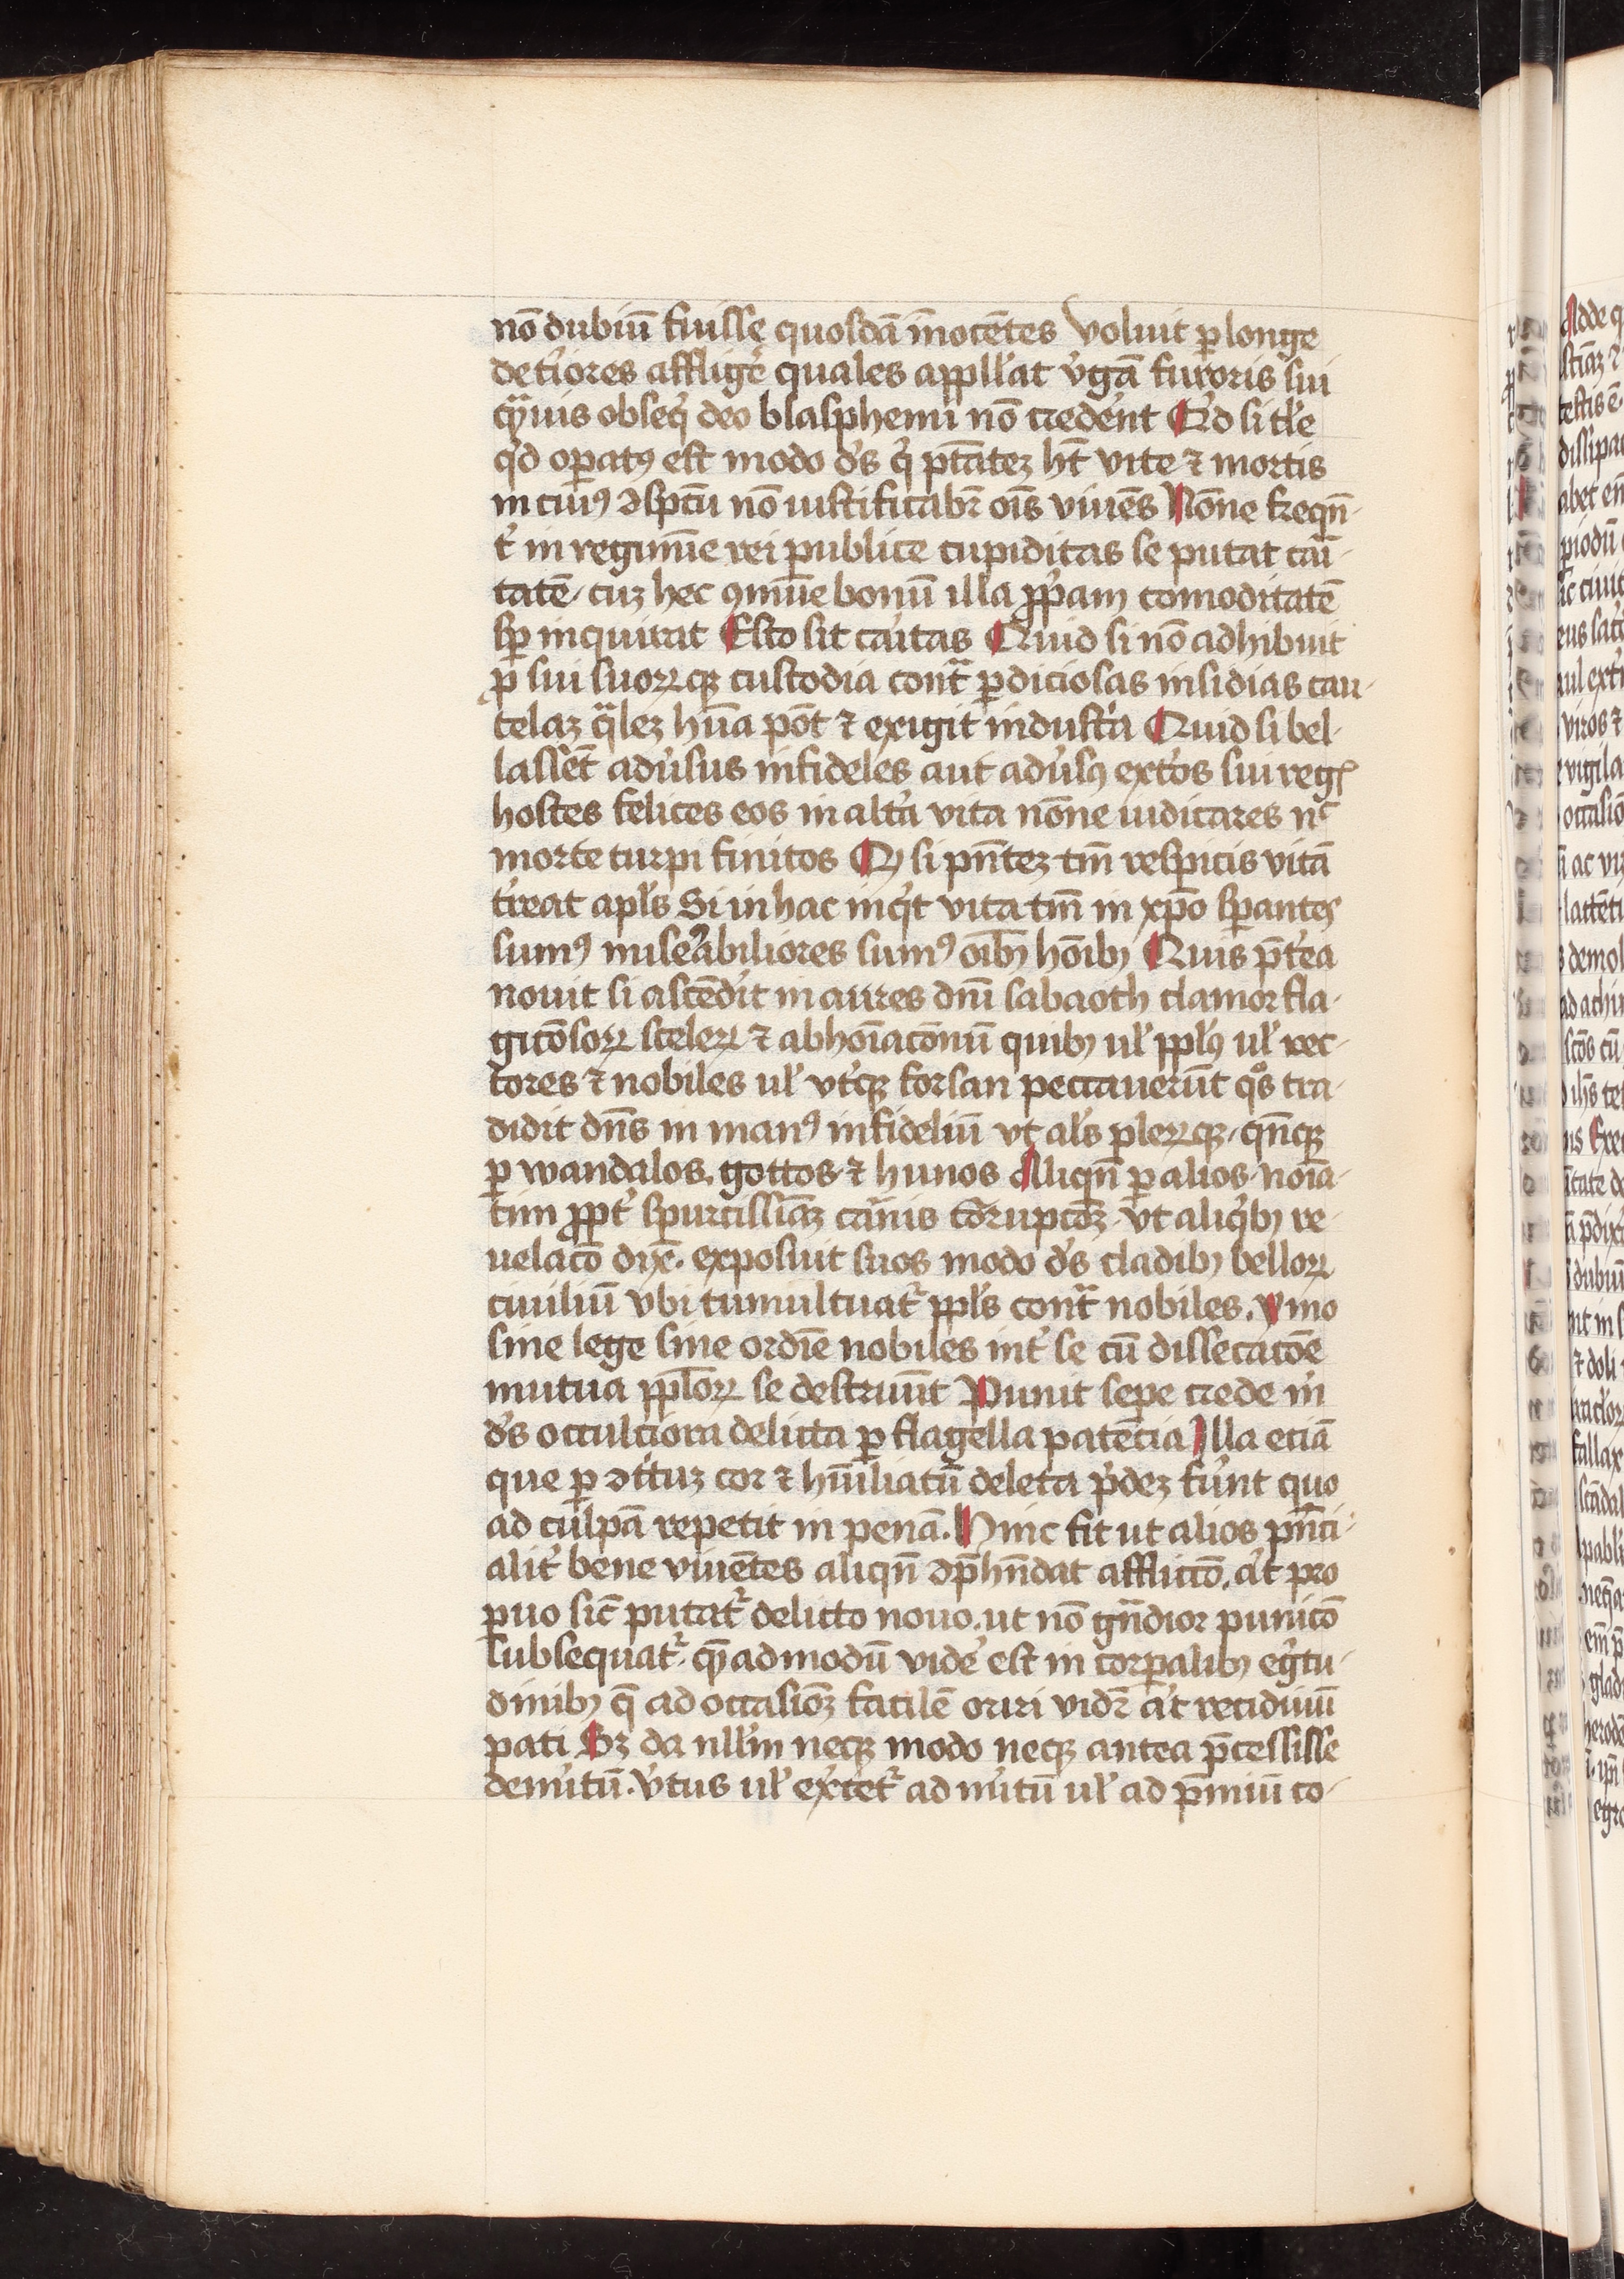 nō dubiū fuisse quosdā īnocētes voluit ꝑ longe
det'iores afflig'e quales appll'at v'gā furoris sui
qͣuis obseq' deo blasphemi nō cred'ent Qd si tl'e
q'd oꝑatꝰ est modo d's q' ptātez hт̄ vite ⁊ mortis
in cuiꝰ ↄsptū nō iustificabr̄ oīs viuēs Nōne freqn̄-
t' in regimīe rei publice cupiditas se putat cari-
tatē cuz hec ꝯmūe bonū illa ꝓpꝛam comoditatē
sꝑ inquirat Esto sit caritas Quid si nō adhibuit
ꝓ sui suoꝝqꝫ custodia contͣ ꝑdiciosas insidias cau-
telaz qͣlez hūa pōt ⁊ exigit indust'a Quid si bel-
lassēt adu'sus infideles aut adu'sꝰ ext'os sui regꝭ
hostes felices eos in alt'a vita nōne iudicares nͨ
morte turpi finitos Qꝫ si pn̄tez tm̄ respicis vitā
t'reat apl's Si in hac inq't vita tm̄ in xp̄o sꝑantes
sumꝰ miserabiliores sumꝰ oībꝫ hōībꝫ Quis p̄t'ea
nouit si ascēd'it in aures dn̄i sabaoth clamor fla-
gicōsoꝝ sceleꝝ ⁊ abhoīacōnū quibꝫ ul' ppl'ꝰ ul' rec-
tores ⁊ nobiles ul' vt'qꝫ forsan peccauerūt qͦs tra-
didit dn̄s in manꝰ infideliū vt al's pleꝝqꝫ qn̄qꝫ
ꝑ wandalos. gottos ⁊ hunos Aliqn̄ ꝑ alios noīa-
tim ꝓpt' spurcissimaz carnis corrupcōꝫ vt aliq'bꝫ re-
uelacō dy̅e. exposuit suos modo d's cladibꝫ belloꝝ
ciuiliū vbi tumultuat' ppl's contͣ nobiles. ymo
sine lege sine ordīe nobiles int' se cū dissecacōe
mutua ppl'oꝝ se destruūt Punit sepe crede m'
d's occulciora delicta ꝑ flagella patēcia Illa eciā
que ꝑ ↄt'tuz cor ⁊ hūiliatū deleta p'dez fu'nt quo
ad culpā repetit in penā. Hinc fit ut alios pn̄ci-
alit' bene viuētes aliqn̄ ↄp̄hn̄dat afflictō. a't pro
puo sic̄ putat' delicto nouo. ut nō gn̄dior punicō
subsequat' qͤadmodū vide' est in corꝑalibꝫ eg'tu-
dinibꝫ q̄ ad occasiōꝫ facilē oriri vidr̄ a't recidiuū
pati Sꝫ da null'm neqꝫ modo neqꝫ antea p̄cessisse
dem'itū. v'tus ul' ex'cet' ad m'itū ul' ad p̄miū co-